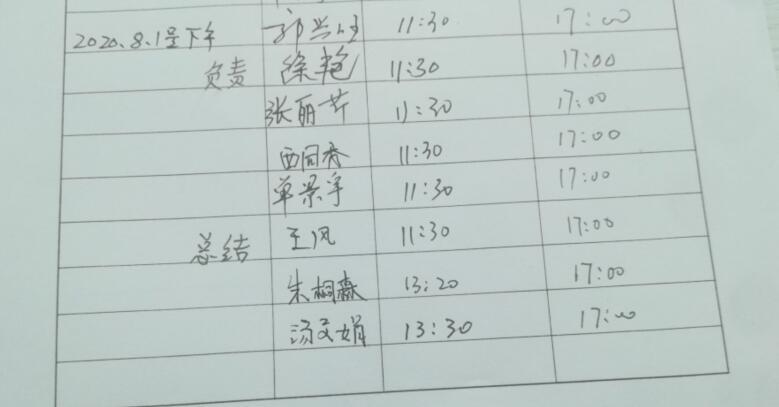 2020.8.1号下午 郭兴旺 11:30 17:00
负责 徐艳 11:30 17:00
张丽芹 11:30 17:00
西同春 11:30 17:00
单景宇 11:30 17:00
总结 王风 11:30 17:00
朱桐森 13:20 17:00
汤文娟 13:30 17:00